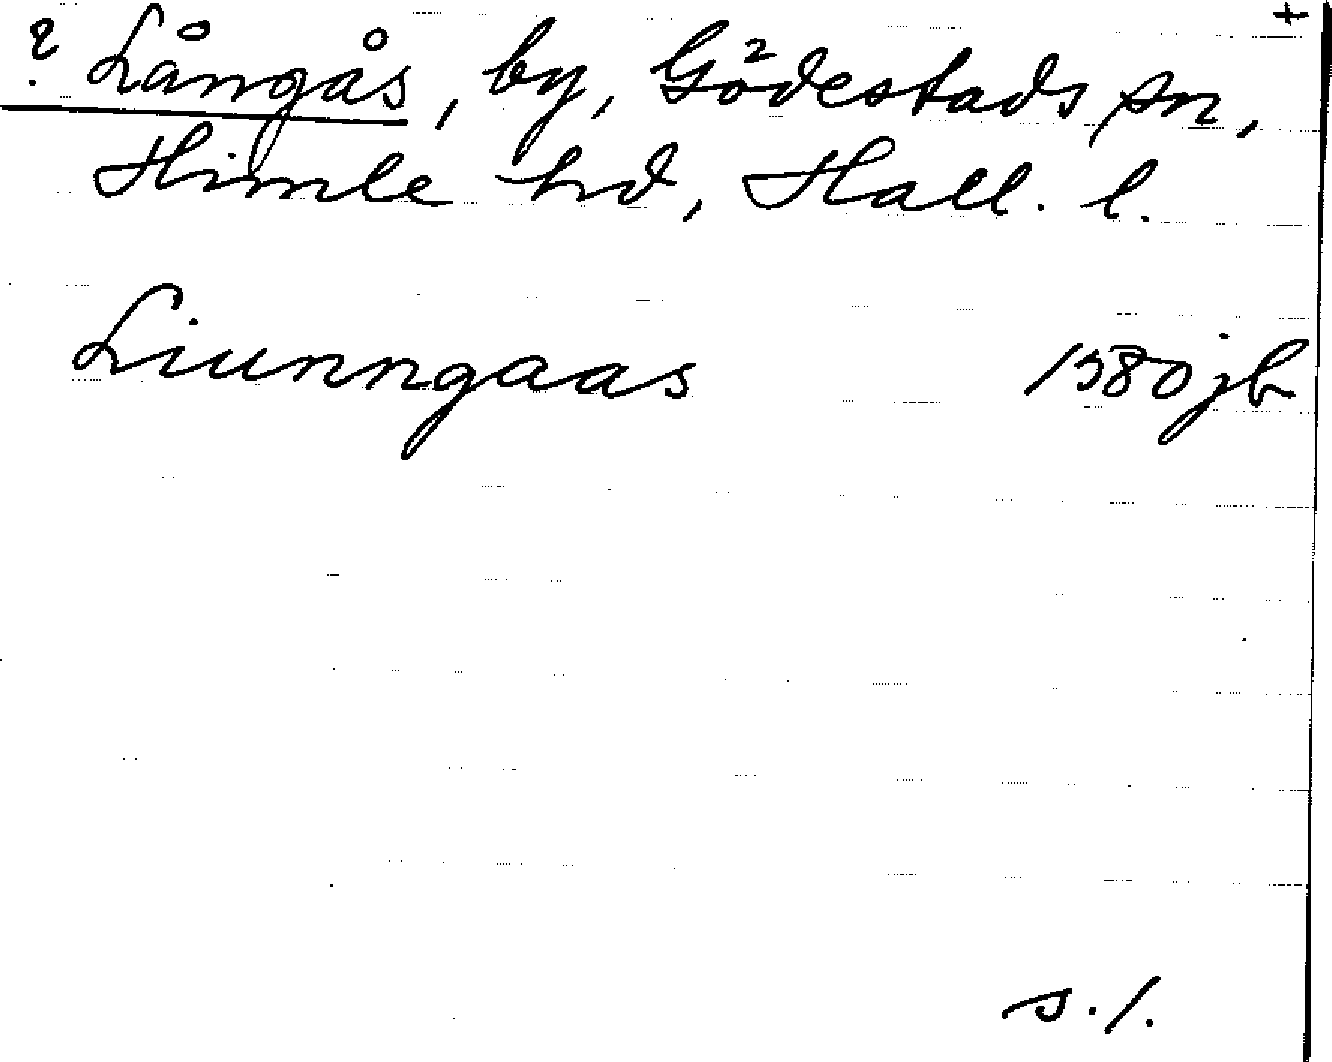 +
? Långås, by, Gödestads sn,
Himle hd, Hall. l.
Liunngaas 1580 jb
s. 1.